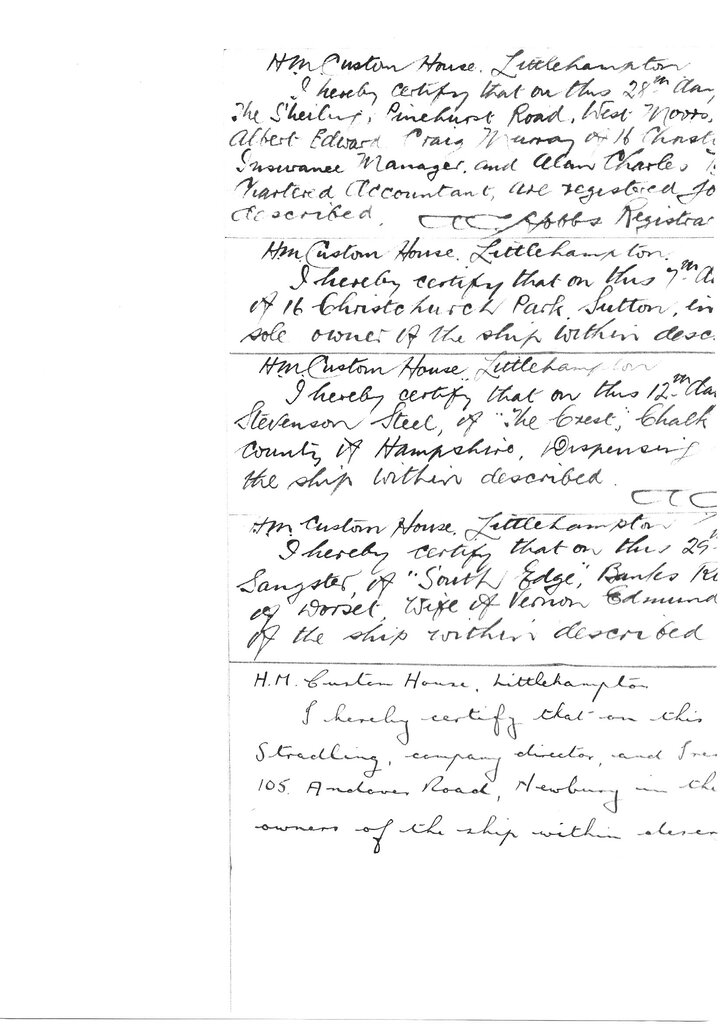 H.M. Custom House. Littlehampton
I hereby certify that on this 28th day
The Sheiling, Pinehurst Road, West Moors,
Albert Edward Craig Murray of 16 Christ
Insurance Manager, and Alan Charles
Chartered Accountant, are registered jo
described. Registra
H.M. Custom House. Littlehampton.
I hereby certify that on this 7th da
of 16 Christchurch Park, Sutton, in
sole owner of the ship within desc
H.M. Custom House. Littlehampton
I hereby certify that on this 12th da
Stevenson Steel, of "The Crest", Chalk
County of Hampshire, Dispensing
the ship within described.
H.M. Custom House. Littlehampton
I hereby certify that on this 29
Sangster, of "South Edge", Banks R
of Dorset, Wife of Vernon Edmund
of the ship within described
H.M. Custom House, Littlehampton
I hereby certify that on this
Stradling, company director, and
105. Andover Road, Newbury in the
owners of the ship within descr